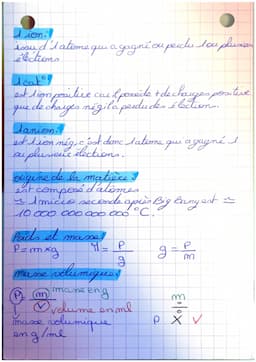 1 ion:
issu d'1 atome qui a gagné ou perdu 1 ou plusieurs
électrons
1 cat°:
est 1 ion positive car il possède + de charges positive
que de charges nég il a perdu des électrons.
1 anion:
est 1 ion nég c'est donc 1 atome qui a gagné 1
ou plusieurs électrons.
origine de la matière:
est composé d'atomes
≈ 1 micro seconde après Big Bang est ≈
10 000 000 000 000 °C.
Poids et masse:
P = m × g M = P/g g = P/m
masse volumique:
P = m masse en g
V volume en ml
masse volumique
en g/ml
m
÷
P X V